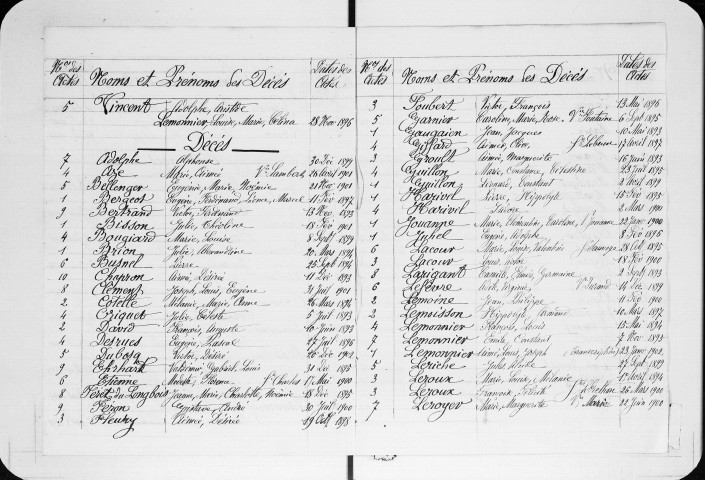 Nos des Actes Noms et Prénoms des Décés Dates des Actes
5 Vincent Adolphe,
Lemonnier, Louise, Marie, Célina 28 Nov 1896
Décés
7 Adolphe Alphonse 30 Déc 1894
4 Axe Marie, Aimée Ve Lambert 26 Avril 1901
5 Bellenger Eugénie, Marie, Noémie 21 Nov 1901
1 Bergeos Eugène, Ferdinand, Léonce, Marcel 11 Fév 1897
9 Bertrand Victor, Ferdinand 13 Nov 1893
1 Bisson Julie, 18 Fév 1901
4 Bougiard Marie, Louise 8 Sept 1899
1 Brion Julie, Alexandrine 20 Mars 1894
6 Busnel Pierre 25 Sept 1894
10 Chapron Aimé, Désiré 11 Déc 1893
8 Clément Joseph, Louis, Eugène 31 Juil 1901
2 Cotelle Mélanie, Marie, Anne 26 Mars 1894
4 Criquet Julie, Céleste 5 Juil 1893
2 David François, Auguste 10 Juin 1893
4 Desrues Eugène, Pascal 27 Juil 1896
5 Dubosq Victor, Désiré 26 Déc 1901
9 Ehrhard Valérine, Louis 31 Déc 1895
6 Etienne 17 Mai 1900
8 Féret du Longbois Jeanne, Marie, Charlotte, Noémie 18 Déc 1895
9 Féron Gustave, André 30 Juil 1900
3 Fleury Aimée, Désirée 19 Oct 1898
Nos des Actes Noms et Prénoms des Décés Dates des Actes
3 Foubert Victor, François 13 Mai 1896
5 Garnier Caroline, Marie, Rose Ve Fontaine 6 Sept 1895
1 Gaugain Jean, Jacques 10 Mai 1893
4 Goffard Aimée, 17 Avril 1897
3 Groult Aimée, Marguerite 16 Juin 1893
4 Guillon Marie, Constance, Célestine 23 Juil 1895
1 Guillon Léonard, Constant 2 Avril 1899
1 Harivel Pierre, Hippolyte 15 Fév 1895
4 Harivel Louise 2 Mars 1900
1 Jouanne Marie, Clémentine, Caroline, 22 Janv 1900
1 Kyhel Eugène, Adolphe 8 Fév 1896
6 Lacour Marie, 28 Oct 1895
3 Lacour Louis, Victor 18 Fév 1900
8 Larigant Camille, Germaine 2 Sept 1893
6 Lefèvre Virginie Ve Durand 14 Déc 1899
2 Lemoine Jean, Philippe 11 Fév 1900
2 Lemoisson Hippolyte, Armand 10 Mars 1897
4 Lemonnier François, Louis 15 Mai 1894
7 Lemonnier Emile, Constant 7 Nov 1893
1 Lemonnier Aimé, Louis, Joseph 23 Janv 1901
5 Leriche Jules 27 Sept 1899
3 Leroux Marie, Louise, Mélanie 17 Avril 1894
3 Leroux Françoise, 26 Mars 1900
7 Leroyer Marie, Marguerite Ve Marie 22 Juin 1900